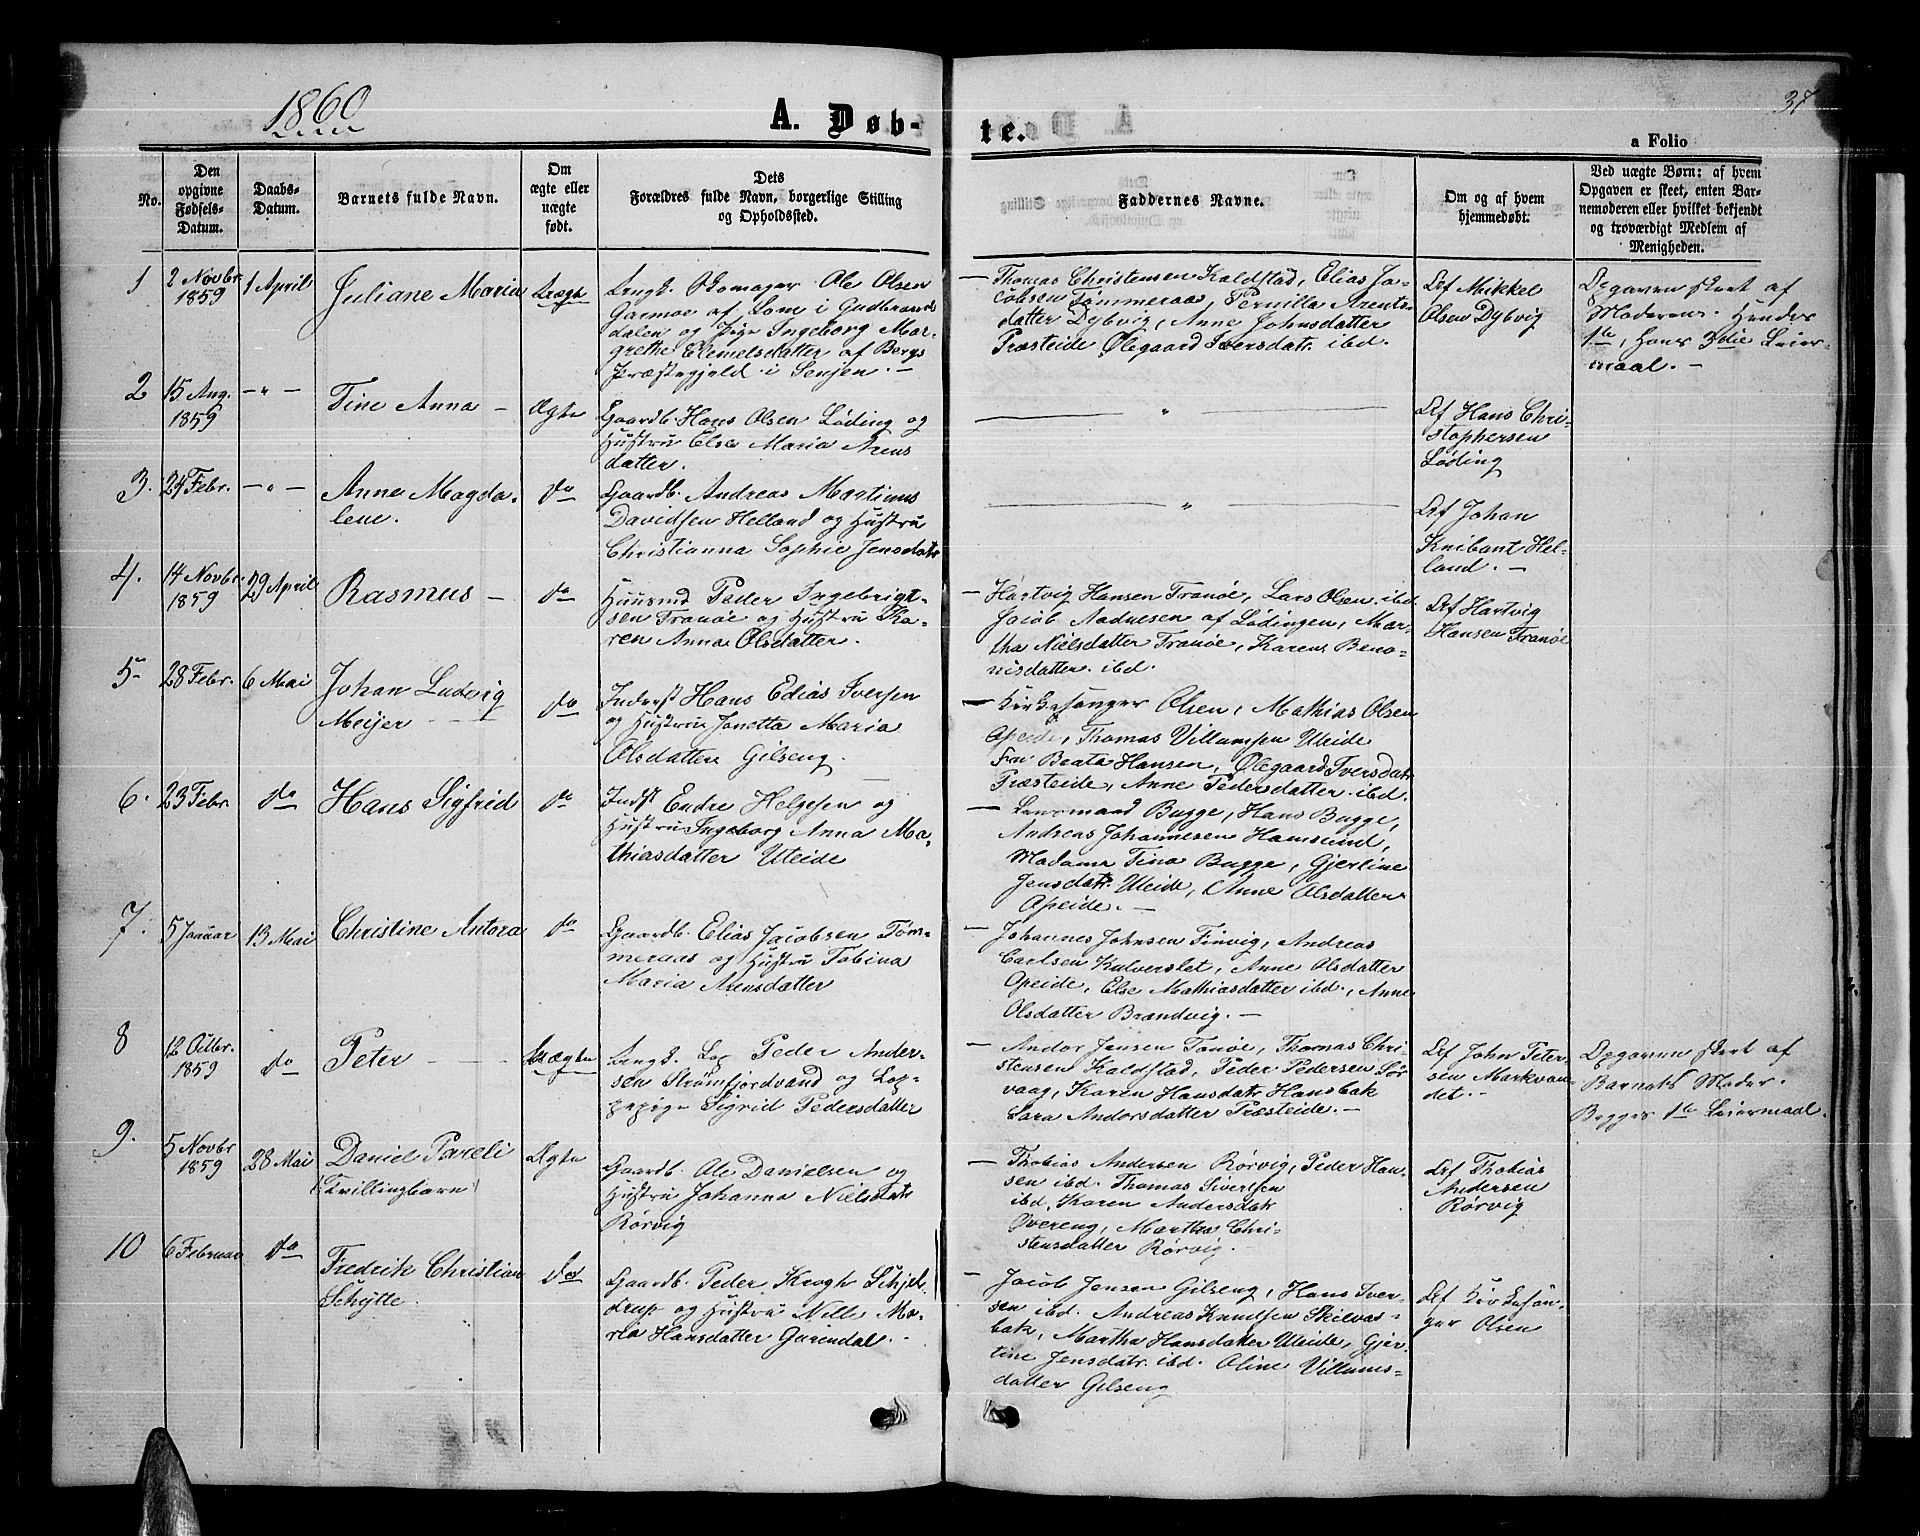 1860
37
A. Døb-
te.
a Folio
No.
Den
opgivne
Fødsels-
Datum.
Daabs-
Datum.
Barnets fulde Navn.
Om
ægte eller
uægte
født.
Dets
Forældres fulde Navn, borgerlige Stilling
og Opholdssted.
Faddernes Navne.
Om og af hvem
hjemmedøbt.
Ved uægte Børn: af hvem
Opgaven er skeet, enten Bar-
nemoderen eller hvilket bekjendt
og troværdigt Medlem af
Menigheden.
1
2 Novbr.
1859
1 April
Juliane Maria
Uægte
Ungk. Skomager Ole Olsen
Garmoe af Lom i Gudbrands
dalen og Pige Ingeborg Mar-
grethe Elemelsdatter af Bergs
Præstegjeld i Senjen. -
- Thomas Christensen Kaldstad, Elias Ja-
cobsen Tømmeraas, Pernilla Arents-
datter Dybvig, Anne Johnsdatter
Præsteide Ølegaard Iversdatr. ibd.
Af Mikkel
Olsen Dybvig
Opgaven skeet af
Moderen. Hendes
1te, Hans 3die Leier-
maal. -
2
15 Aug.
1859
- " -
Tine Anna -
Ægte
Gaardb. Hans Olsen Løding og
Hustru Else Maria Arens
datter.
"
Af Hans Chri-
stophersen
Løding
3.
24 Febr.
- " -
Anne Magda-
lene.
do
Gaardb. Andreas Martinus
Davidsen Helland og Hustru
Christianna Sophie Jensdatr
"
Af Johan
Knibant Hel-
land. -
4.
14 Novbr.
1859
29 April
Rasmus -
do
Huusmd Peder Ingebrigt-
sen Tranøe og Hustru Ka-
ren Anna Olsdatter.
- Hartvig Hansen Tranøe, Lars Olsen ibd.
Jacob Aadnesen af Lødingen, Mar-
tha Nielsdatter Tranøe, Karen Beno-
nisdatter ibd.
Af Hartvig
Hansen Tranøe
5
28 Febr.
6 Mai
Johan Ludvig
Meijer
do
Inderst Hans Edias Iversen
og Hustru Jonetta Maria
Olsdatter Gilseng.
- Kirkesanger Olsen, Mathias Olsen
Apeide, Thomas Villumsen Uleide
Fru Beata Hansen, Ølegaard Iversdatr
Præsteide, Anne Pedersdatter ibd.
6.
23 Febr
do
Hans Sigfrid
do
Indst Endre Helgesen og
Hustru Ingeborg Anna Ma-
thiasdatter Uleide
- Lensmand Bugge, Hans Bugge,
Andreas Johannesen Hamsund,
Madame Tina Bugge, Gjertine
Jensdatr. Uleide, Anne Olsdatter
Apeide. -
7.
5 Januar
13 Mai
Christine Antora
do
Gaardb. Elias Jacobsen Tøm-
meraas og Hustru Tobina
Maria Arensdatter
- Johannes Johnsen Finvig, Andreas
Carlsen Kulverslet, Anne Olsdatter
Apeide, Else Mathiasdatter ibd., Anne
Olsdatter Brændvig. -
8
12 Octbr.
1859
do
Peter
Uægte
Ungk. Lap Peder Ander-
sen Strømfjordvand og Lap-
pepige Sigrid Pedersdatter
- Andor Jensen Tranøe, Thomas Chri-
stensen Kaldstad, Peder Pedersen Sør
vaag, Karen Hansdatr Hansbak
Sara Andorsdatter Præsteide. -
Af John Peter-
sen Markvan-
det. -
Opgaven skeet af
Barnets Moder.
Begges 1te Leiermaal.
9.
5 Novbr
1859
28 Mai
Daniel Pareli
(Tvillingbarn)
Ægte
Gaardb. Ole Danielsen og
Hustru Johanna Nielsdatr
Rørvig
- Thobias Andersen Rørvig, Peder Han-
sen ibd. Thomas Sivertsen
ibd, Karen Andersdatr
Øvereng, Martha Chri-
stensdatter Rørvig. -
Af Thobias
Andersen
Rørvig
10
6 Februar
do
Fredrik Christian
Schytte.
do
Gaardb. Peder Krogh Schjel-
drup og Hustru Nille Ma-
ria Hansdatter Garendal. -
- Jacob Jensen Gilseng, Hans Iver-
sen ibd. Andreas Knudsen Skilvas-
bak, Martha Hansdatter Uleide, Gjer-
tine Jensdatr. ibd. Oline Villums-
datter Gilseng
Af Kirkesan-
ger Olsen